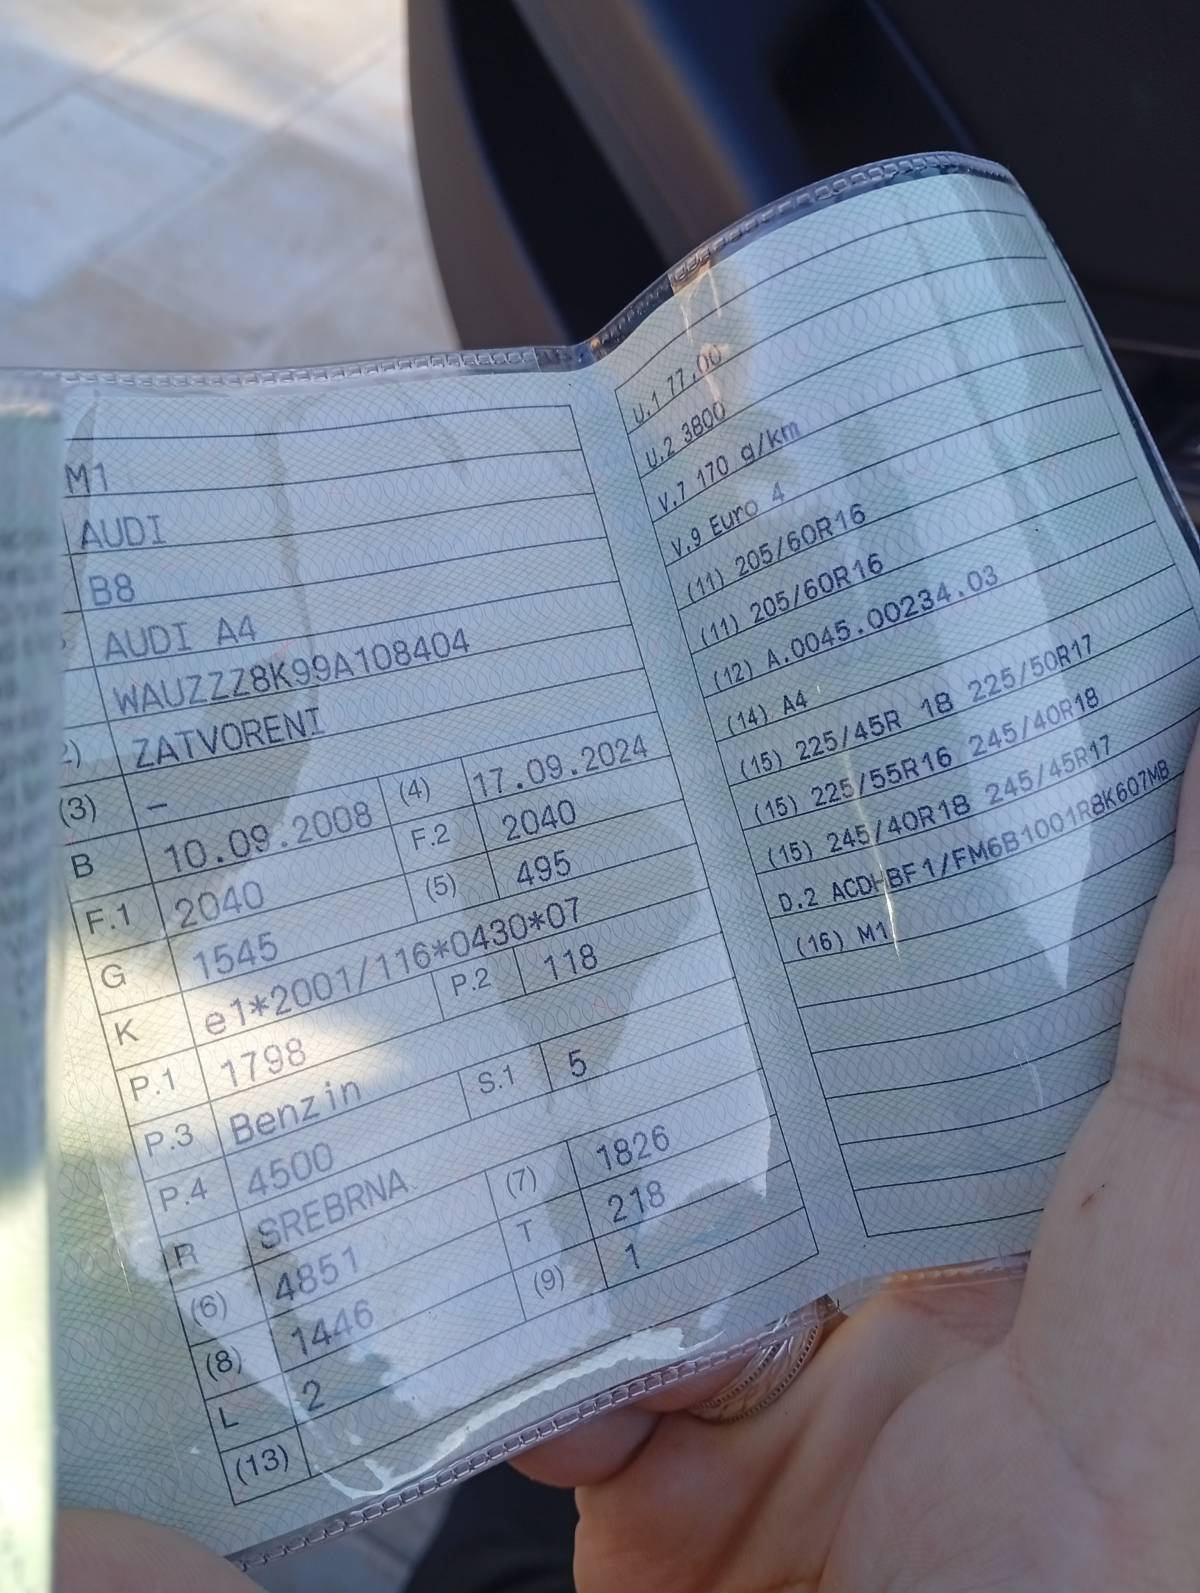 M1
AUDI
B8
AUDI A4
WAUZZZ8K99A108404
ZATVORENI
(3) –
B 10.09.2008 (4) 17.09.2024
F.1 2040 F.2 2040
G 1545 (5) 495
K e1*2001/116*0430*07
P.1 1798 P.2 118
P.3 Benzin
P.4 4500 S.1 5
R SREBRNA
(6) 4851 (7) 1826
(8) 1446 T 218
L 2 (9) 1
(13)
U.1 77,00
U.2 3800
V.7 170 g/km
V.9 Euro 4
(11) 205/60R16
(11) 205/60R16
(12) A.0045.00234.03
(14) A4
(15) 225/45R 18 225/50R17
(15) 225/55R16 245/40R18
(15) 245/40R18 245/45R17
D.2 ACDHBF1/FM6B1001R8K607MB
(16) M1